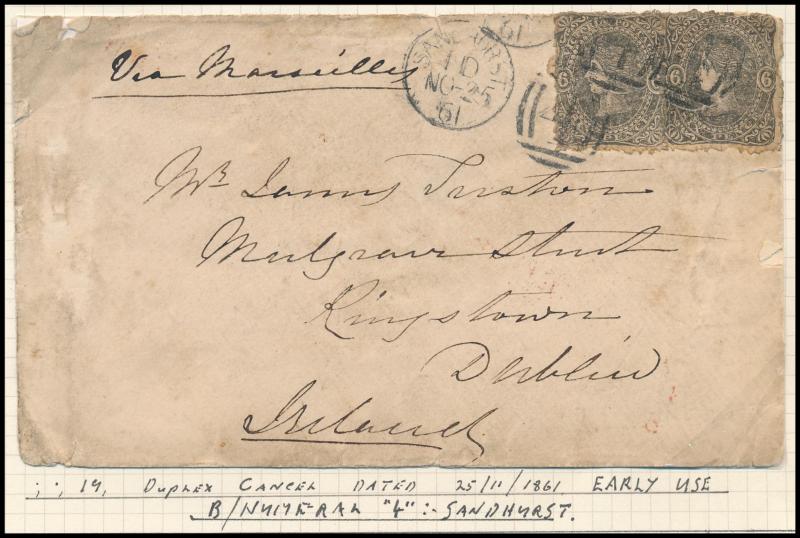 Via Marseilles
SANDHURST
1D
NO-25
61
61
6 6 6
4
Mr James
Mulgrave Street
Kingstown
Dublin
Ireland
; ; 19, DUPLEX CANCEL DATED 25/11/1861 EARLY USE
B/NUMERAL "4" :- SANDHURST.